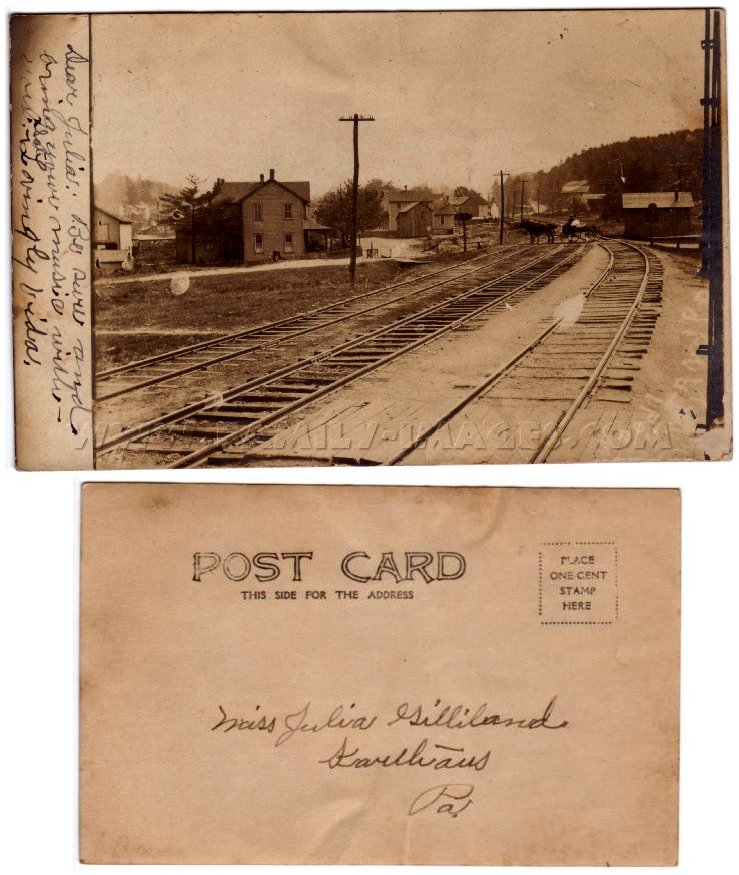 Dear Julia. Be sure and
bring your music with -
you. Lovingly Vida.
WWW.FAMILY-IMAGES.COM
POST CARD
THIS SIDE FOR THE ADDRESS
PLACE
ONE CENT
STAMP
HERE
Miss Julia Gilliland
Karthaus
Pa.